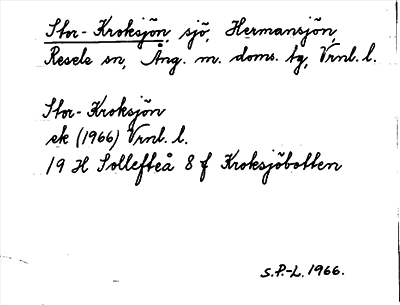 Stor-Kroksjön, sjö, Hermansjön,
Resele sn, Ång. m. doms. tg, Vrnl. l.
Stor-Kroksjön
ek (1966) Vrnl. l.
19 H Sollefteå 8 f Kroksjöbotten
S.P.-L. 1966.